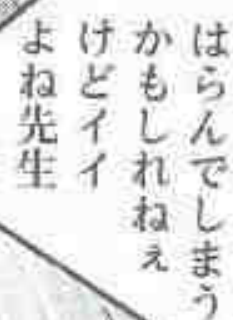 はらんでしまう
かもしれねぇ
けどイイ
よね先生